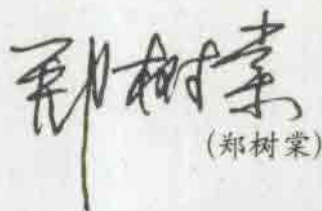 郑树棠
(郑树棠)